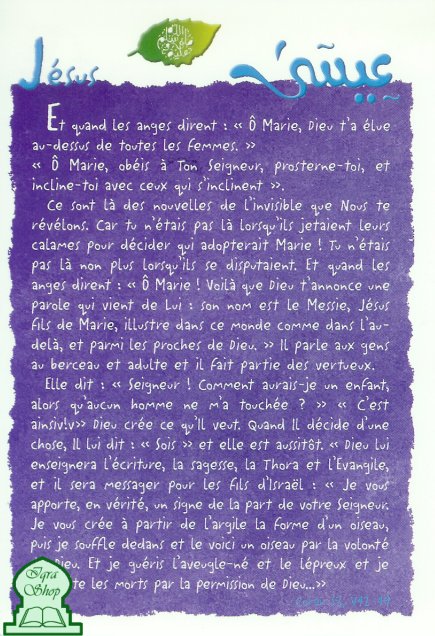 Jésus عيسى
Et quand les anges dirent : « Ô Marie, Dieu t'a élue
au-dessus de toutes les femmes. »
« Ô Marie, obéis à Ton Seigneur, prosterne-toi, et
incline-toi avec ceux qui s'inclinent ».
Ce sont là des nouvelles de l'invisible que Nous te
révélons. Car tu n'étais pas là lorsqu'ils jetaient leurs
calames pour décider qui adopterait Marie ! Tu n'étais
pas là non plus lorsqu'ils se disputaient. Et quand les
anges dirent : « Ô Marie ! Voilà que Dieu t'annonce une
parole qui vient de Lui : son nom est le Messie, Jésus
fils de Marie, illustre dans ce monde comme dans l'au-
delà, et parmi les proches de Dieu. » Il parle aux gens
au berceau et adulte et il fait partie des vertueux.
Elle dit : « Seigneur ! Comment aurais-je un enfant,
alors qu'aucun homme ne m'a touchée ? » « C'est
ainsiv!v» Dieu crée ce qu'Il veut. Quand Il décide d'une
chose, Il lui dit : « Sois » et elle est aussitôt. « Dieu lui
enseignera l'écriture, la sagesse, la Thora et l'Evangile,
et il sera messager pour les fils d'Israël : « Je vous
apporte, en vérité, un signe de la part de votre Seigneur.
Je vous crée à partir de l'argile la forme d'un oiseau,
puis je souffle dedans et le voici un oiseau par la volonté
Dieu. Et je guéris l'aveugle-né et le lépreux et je
les morts par la permission de Dieu...»
Iqra
Shop